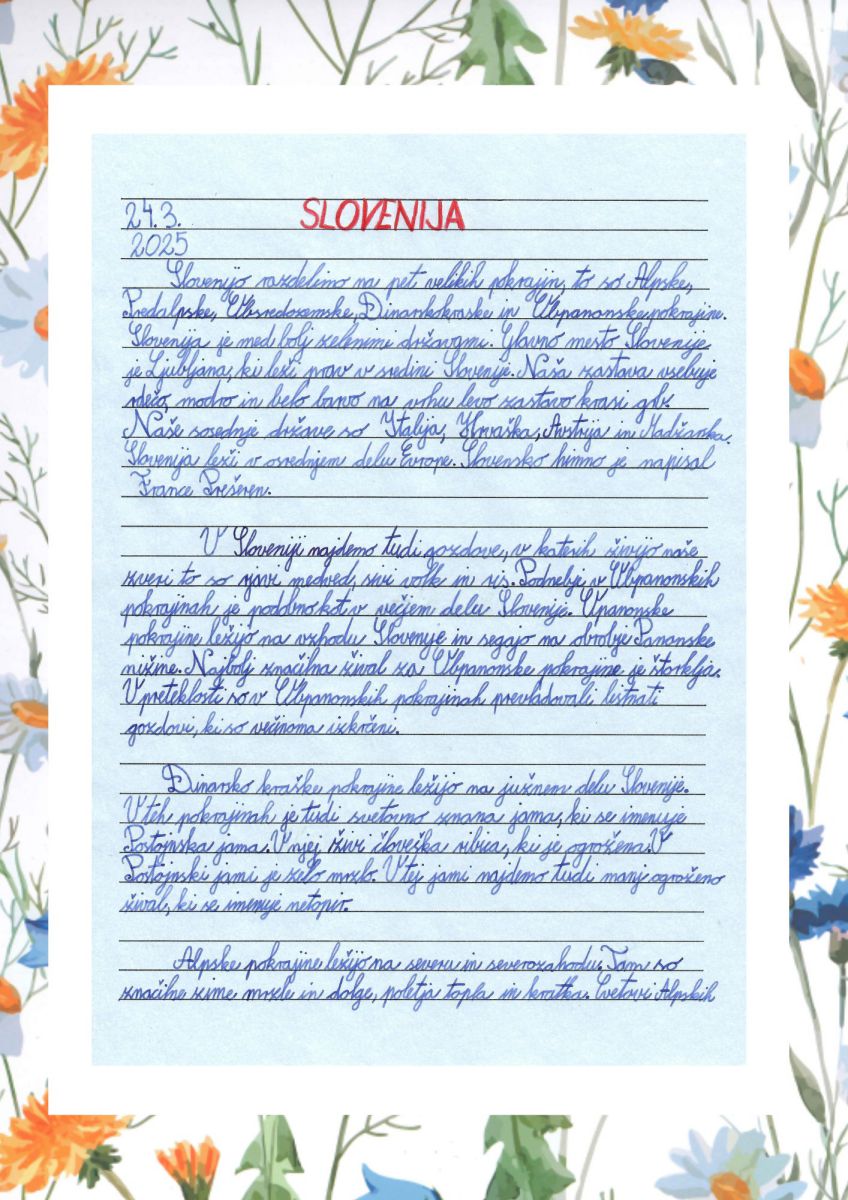 24.3. SLOVENIJA
2025
Slovenijo razdelimo na pet velikih pokrajin, to so Alpske,
Predalpske, Obsredozemske, Dinarskokraske in Obpanonske pokrajine.
Slovenija je med bolj zelenimi državami. Glavno mesto Slovenije
je Ljubljana, ki leži prav v sredini Slovenije. Naša zastava vsebuje
rdečo, modro in belo barvo na vrhu levo zastavo krasi grb.
Naše sosednje države so Italija, Hrvaška, Avstrija in Madžarska.
Slovenija leži v osrednjem delu Evrope. Slovensko himno je napisal
France Prešeren.
V Sloveniji najdemo tudi gozdove, v katerih živijo naše
zveri to so rjavi medved, sivi volk in ris. Podnebje v Obpanonskih
pokrajinah je podobno kot v večjem delu Slovenije. Opanonske
pokrajine ležijo na vzhodu Slovenije in segajo na obrobje Panonske
nižine. Najbolj značilna žival za Obpanonske pokrajine je štorklja.
V preteklosti so v Obpanonskih pokrajinah prevladovali listnati
gozdovi, ki so večinoma izkrčeni.
Dinarsko kraške pokrajine ležijo na južnem delu Slovenije.
V teh pokrajinah je tudi svetovno znana jama, ki se imenuje
Postojnska jama. V njej živi človeška ribica, ki je ogrožena. V
Postojnski jami je zelo mrzlo. V tej jami najdemo tudi manj ogroženo
žival, ki se imenuje netopir.
Alpske pokrajine ležijo na severu in severozahodu. Tam so
značilne zime mrzle in dolge, poletja topla in kratka. Cvetovi Alpskih